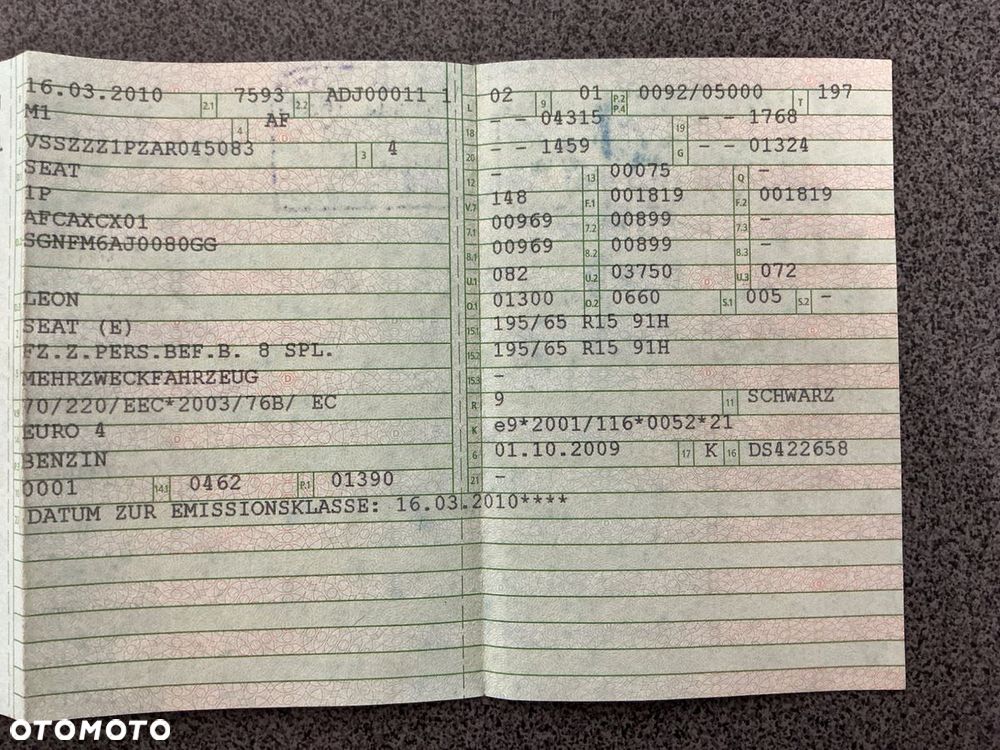 16.03.2010 2.1 7593 2.2 ADJ00011 1
M1 4 AF
VSSZZZ1PZAR045083 3 4
SEAT
1P
AFCAXCX01
SGNFM6AJ0080GG
LEON
SEAT (E)
FZ.Z.PERS.BEF.B. 8 SPL.
MEHRZWECKFAHRZEUG
70/220/EEC*2003/76B/ EC
EURO 4
BENZIN
0001 14.1 0462 P.1 01390
DATUM ZUR EMISSIONSKLASSE: 16.03.2010****
L 02 9 01 P.2 P.4 0092/05000 T 197
18 - - 04315 19 - - 1768
20 - - 1459 G - - 01324
12 - 13 00075 Q -
V.7 148 F.1 001819 F.2 001819
7.1 00969 7.2 00899 7.3 -
8.1 00969 8.2 00899 8.3 -
U.1 082 U.2 03750 U.3 072
O.1 01300 O.2 0660 S.1 005 S.2 -
15.1 195/65 R15 91H
15.2 195/65 R15 91H
15.3 -
R 9 11 SCHWARZ
K e9*2001/116*0052*21
6 01.10.2009 17 K 16 DS422658
21 -
OTOMOTO